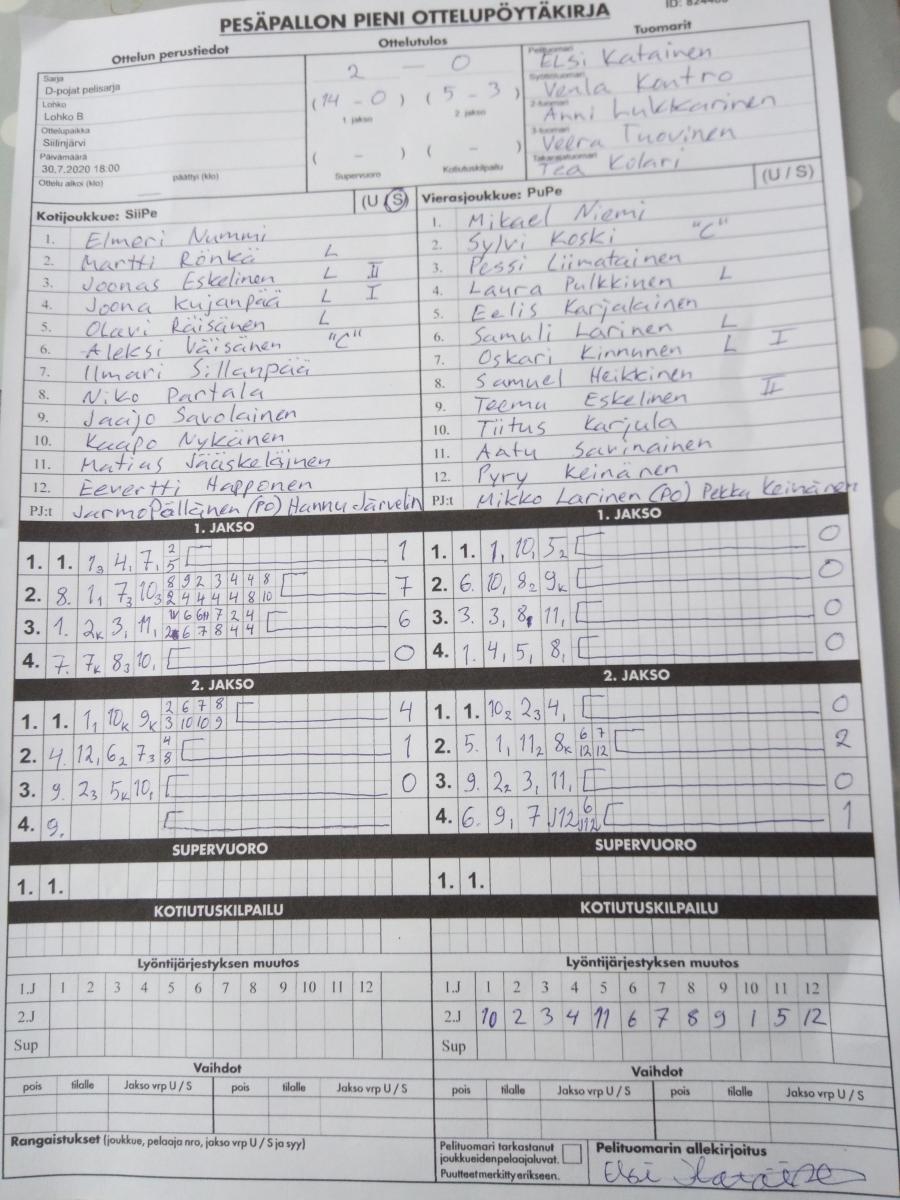 PESÄPALLON PIENI OTTELUPÖYTÄKIRJA
ID:
Ottelun perustiedot
Ottelutulos
Tuomarit
Sarja
D-pojat pelisarja
Lohko
Lohko B
Ottelupaikka
Siilinjärvi
Päivämäärä
30.7.2020 18:00
Ottelu alkoi (klo) päättyi (klo)
2 — 0
(14 - 0) (5 - 3)
1. jakso 2. jakso
( - ) ( - )
Supervuoro Kotiutuskilpailu
Pelituomari
Elsi Katainen
Syöttötuomari
Venla Kontro
2-tuomari
Anni Lukkarinen
3-tuomari
Veera Tuovinen
Takarajatuomari
Tea Kolari
Kotijoukkue: SiiPe (U / S)
1. Elmeri Nummi
2. Martti Rönkä L
3. Joonas Eskelinen L II
4. Joona Kujanpää L I
5. Olavi Räisänen L
6. Aleksi Väisänen "C"
7. Ilmari Sillanpää
8. Niko Partala
9. Jaajo Savolainen
10. Kaapo Nykänen
11. Matias Jääskeläinen
12. Eevertti Happonen
PJ:t Jarmo Pällänen (PO) Hannu Järvelin
Vierasjoukkue: PuPe (U / S)
1. Mikael Niemi
2. Sylvi Koski "C"
3. Pessi Liimatainen
4. Laura Pulkkinen L
5. Eelis Karjalainen
6. Samuli Larinen L
7. Oskari Kinnunen L I
8. Samuel Heikkinen
9. Teemu Eskelinen II
10. Tiitus Karjula
11. Aatu Savinainen
12. Pyry Keinänen
PJ:t Mikko Larinen (PO) Pekka Keinänen
1. JAKSO
1. 1. 1₃ 4, 7, 2 1
5
2. 8. 1₁ 7₃ 10₃ 8 9 2 3 4 4 8 7
2 4 4 4 4 8 10
3. 1. 2ₖ 3, 11, 6
4. 7. 7ₖ 8₃ 10, 0
1. JAKSO
1. 1. 1, 10, 5₂ 0
2. 6. 10, 8₂ 9ₖ 0
3. 3. 3, 8, 11, 0
4. 1. 4, 5, 8, 0
2. JAKSO
1. 1. 1₁ 10ₖ 9ₖ 2 6 7 8 4
3 10 10 9
2. 4. 12, 6₂ 7₃ 4 1
8
3. 9. 2₃ 5ₖ 10, 0
4. 9.
2. JAKSO
1. 1. 10₂ 2₃ 4, 0
2. 5. 1, 11₂ 8ₖ 6 7 2
12 12
3. 9. 2₂ 3, 11, 0
4. 6. 9, 7 J12 6 1
J12
SUPERVUORO
1. 1.
SUPERVUORO
1. 1.
KOTIUTUSKILPAILU
KOTIUTUSKILPAILU
Lyöntijärjestyksen muutos
1.J 1 2 3 4 5 6 7 8 9 10 11 12
2.J
Sup
Lyöntijärjestyksen muutos
1.J 1 2 3 4 5 6 7 8 9 10 11 12
2.J 10 2 3 4 11 6 7 8 9 1 5 12
Sup
Vaihdot
pois tilalle Jakso vrp U / S pois tilalle Jakso vrp U / S
Vaihdot
pois tilalle Jakso vrp U / S pois tilalle Jakso vrp U / S
Rangaistukset (joukkue, pelaaja nro, jakso vrp U / S ja syy)
Pelituomari tarkastanut
joukkueidenpelaajaluvat.
Puutteet merkitty erikseen.
Pelituomarin allekirjoitus
Elsi Katainen